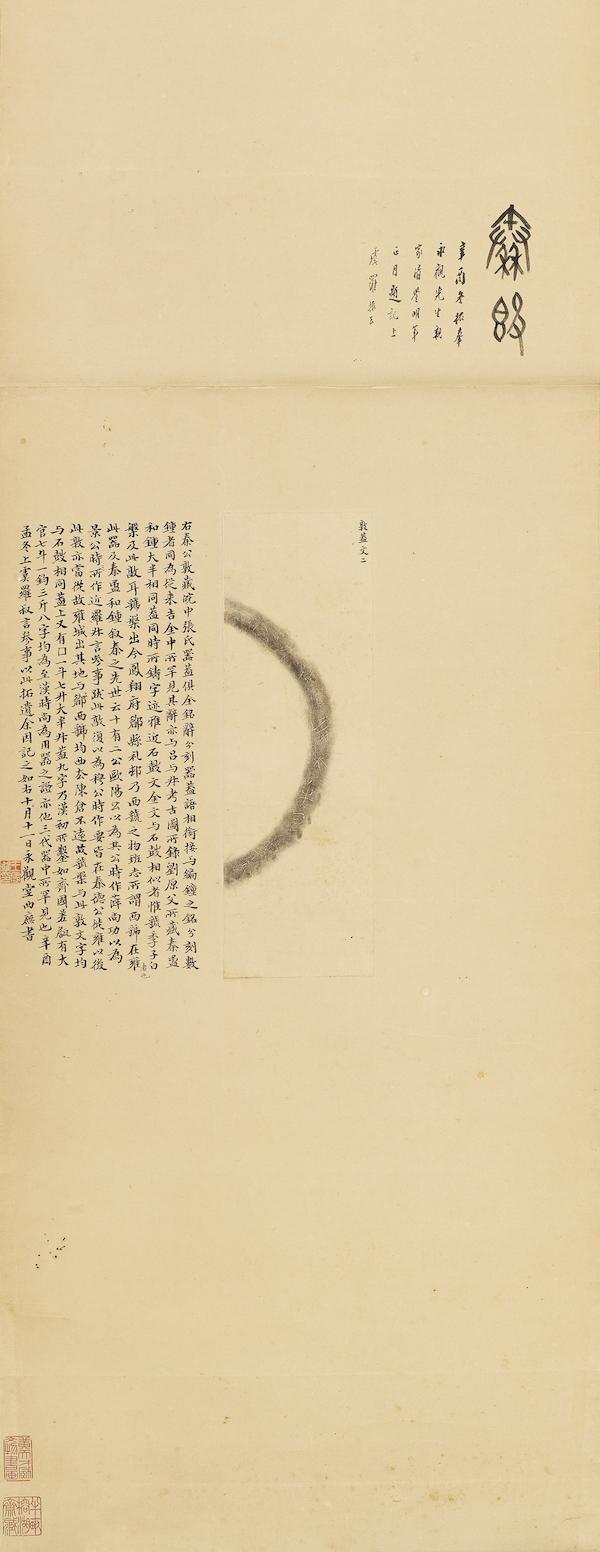 秦𣪘
辛酉冬拓奉
永觀先生親
家清鑒明年
正月題記上
虞羅振玉
敦蓋文二
右秦公敦藏皖中張氏器蓋俱全銘辭分刻器蓋語相銜接与編鐘之銘分刻數
鐘者同為從來吉金中所罕見其辭亦与呂与叔考古圖所錄劉原父所藏秦盄
和鐘大半相同蓋同時所鑄字迹雅近石鼓文金文与石鼓相似者惟虢季子白
槃及此敦耳虢槃出今鳳翔府郿縣礼邨乃西虢之物班志所謂西虢在雍
者也
此器及秦盄和鐘叙秦之先世云十有二公歐陽公以為共公時作薛尚功以為
景公時所作近羅叔言參事跋此敦復以為穆公時作要皆在秦德公徙雍以後
此敦亦當從故雍城出其地与郿西虢均西去陳倉不遠故虢槃与此敦文字均
与石鼓相同蓋上又有囗一斗七升大半升蓋九字乃漢初所鑿如齊國差𦉜有大
官七斗一鈞三斤八字均為至漢時尚為用器之證亦他三代器中所罕見也辛酉
孟冬上虞羅叔言參事以此拓遺余因記之如右十月十一日永觀堂西廡書